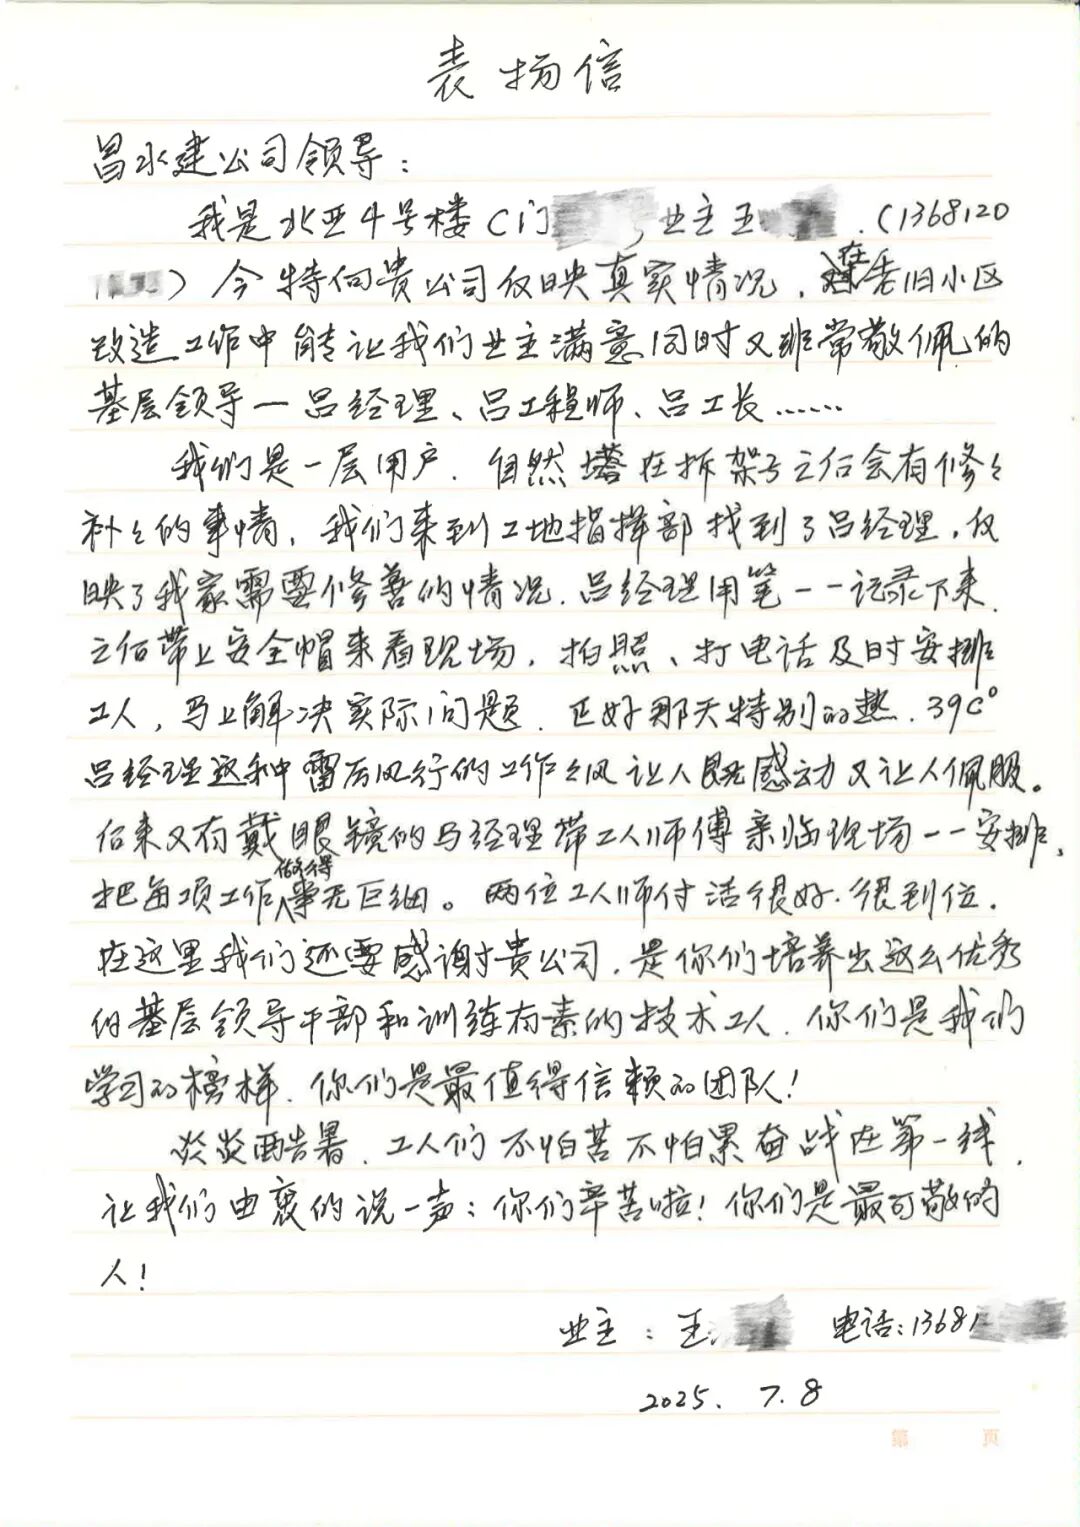 表扬信
昌水建公司领导：
我是北亚4号楼C门 业主王 .(1368120
)今特向贵公司反映真实情况，在老旧小区
改造工作中能让我们业主满意同时又非常敬佩的
基层领导—吕经理、吕工程师、吕工长……
我们是一层用户.自然 在拆架子之后会有修修
补补的事情，我们来到工地指挥部找到了吕经理，反
映了我家需要修善的情况.吕经理用笔一一记录下来.
之后带上安全帽来看现场，拍照、打电话及时安排
工人，马上解决实际问题.正好那天特别的热.39C°
吕经理这种雷厉风行的工作作风让人既感动又让人佩服。
后来又有戴眼镜的马经理带工人师傅亲临现场一一安排，
把每项工作做得事无巨细。两位工人师付活很好.很到位.
在这里我们还要感谢贵公司，是你们培养出这么优秀
的基层领导干部和训练有素的技术工人.你们是我们
学习的榜样.你们是最值得信赖的团队！
炎炎酷暑.工人们不怕苦不怕累奋战在第一线.
让我们由衷的说一声：你们辛苦啦！你们是最可敬的
人！
业主：王 电话：13681
2025.7.8
第 页